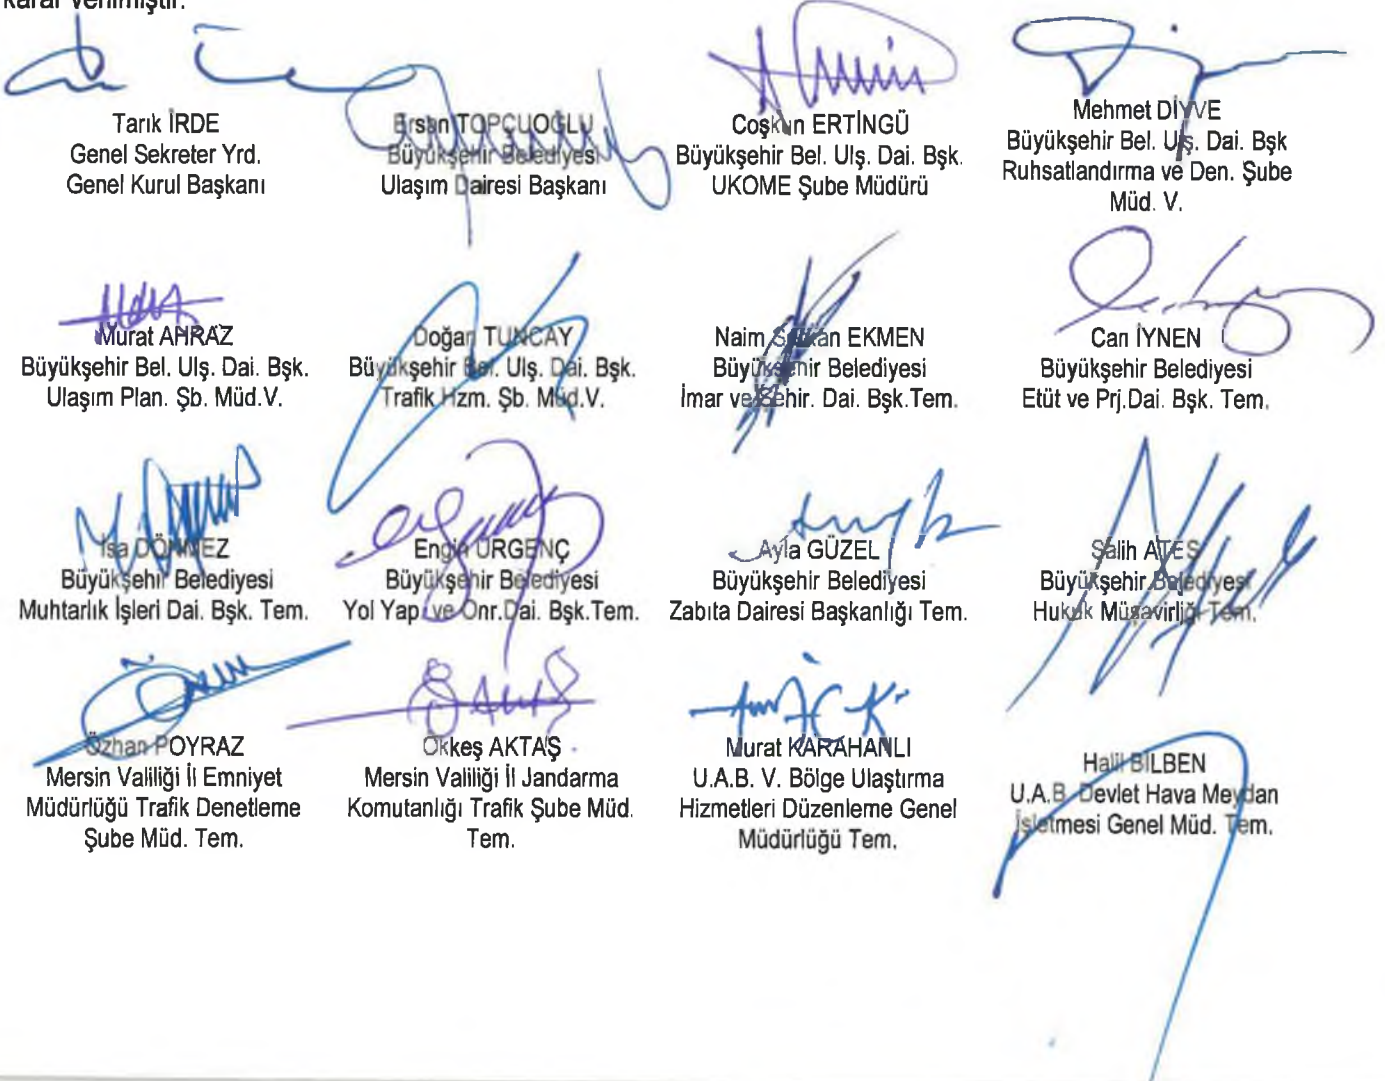 karar verilmiştir.
Tarık İRDE
Genel Sekreter Yrd.
Genel Kurul Başkanı
Ersan TOPCUOĞLU
Büyükşehir Belediyesi
Ulaşım Dairesi Başkanı
Coşkun ERTİNGÜ
Büyükşehir Bel. Ulş. Dai. Bşk.
UKOME Şube Müdürü
Mehmet DİYVE
Büyükşehir Bel. Ulş. Dai. Bşk
Ruhsatlandırma ve Den. Şube
Müd. V.
Murat AHRAZ
Büyükşehir Bel. Ulş. Dai. Bşk.
Ulaşım Plan. Şb. Müd.V.
Doğan TUNCAY
Büyükşehir Bel. Ulş. Dai. Bşk.
Trafik Hzm. Şb. Müd.V.
Naim Serkan EKMEN
Büyükşehir Belediyesi
İmar ve Şehir. Dai. Bşk.Tem.
Can İYNEN
Büyükşehir Belediyesi
Etüt ve Prj.Dai. Bşk. Tem.
İsa DÖNMEZ
Büyükşehir Belediyesi
Muhtarlık İşleri Dai. Bşk. Tem.
Engin ÜRGENÇ
Büyükşehir Belediyesi
Yol Yap. ve Onr.Dai. Bşk.Tem.
Ayla GÜZEL
Büyükşehir Belediyesi
Zabıta Dairesi Başkanlığı Tem.
Salih ATEŞ
Büyükşehir Belediyesi
Hukuk Müşavirliği Tem.
Özhan POYRAZ
Mersin Valiliği İl Emniyet
Müdürlüğü Trafik Denetleme
Şube Müd. Tem.
Ökkeş AKTAŞ
Mersin Valiliği İl Jandarma
Komutanlığı Trafik Şube Müd.
Tem.
Murat KARAHANLI
U.A.B. V. Bölge Ulaştırma
Hizmetleri Düzenleme Genel
Müdürlüğü Tem.
Halil BİLBEN
U.A.B. Devlet Hava Meydan
İşletmesi Genel Müd. Tem.